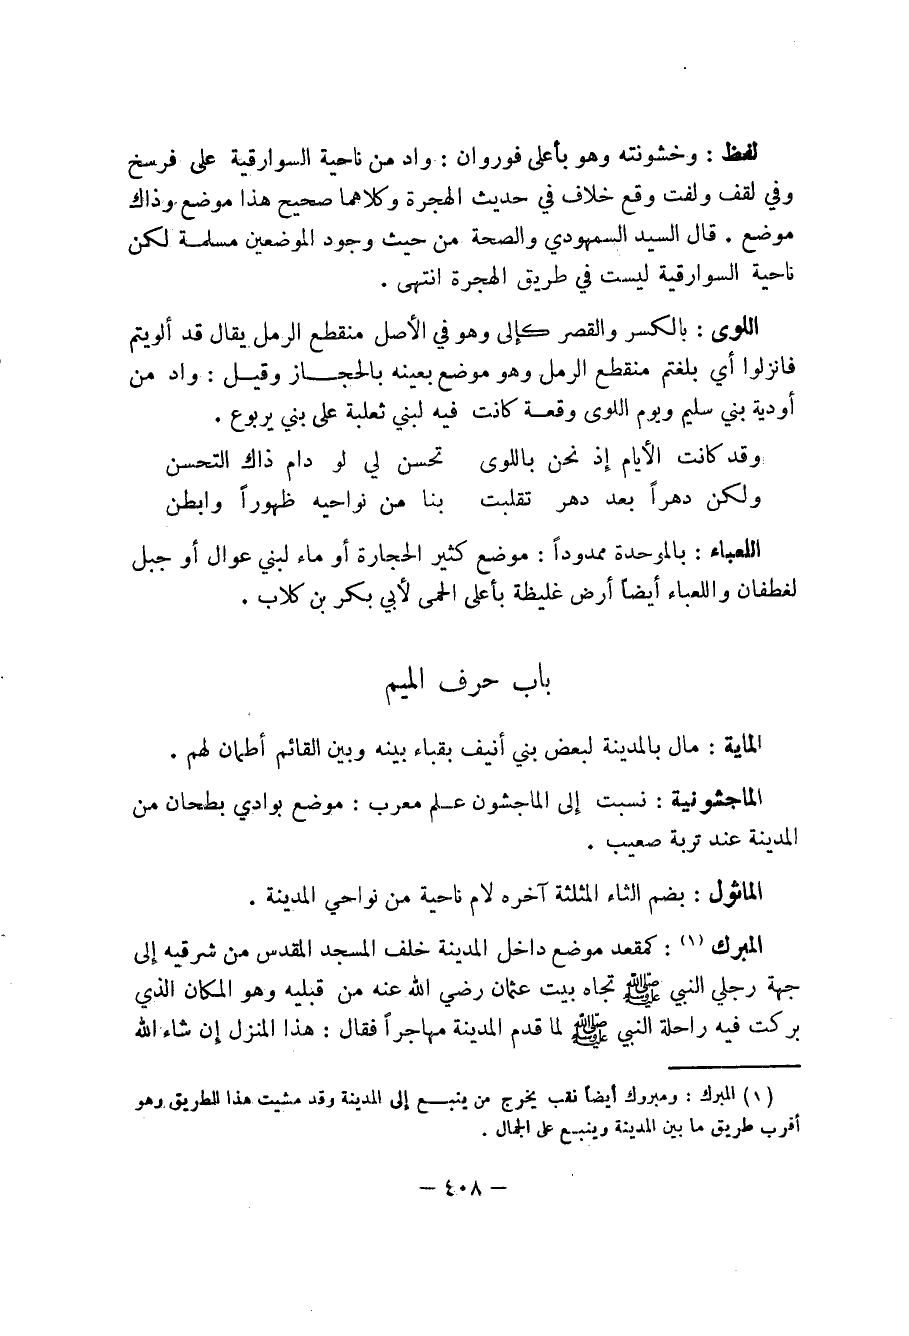 لفظ : وخشونته وهو بأعلى فوروان : واد من ناحية السوارقية على فرسخ
وفي لقف ولفت وقع خلاف في حديث الهجرة وكلاهما صحيح هذا موضع وذاك
موضع . قال السيد السمهودي والصحة من حيث وجود الموضعين مسلمة لكن
ناحية السوارقية ليست في طريق الهجرة انتهى .
اللوى : بالكسر والقصر كإلى وهو في الأصل منقطع الرمل يقال قد ألويتم
فانزلوا أي بلغتم منقطع الرمل وهو موضع بعينه بالحجاز وقيل : واد من
أودية بني سليم ويوم اللوى وقعة كانت فيه لبني ثعلبة على بني يربوع .
وقد كانت الأيام إذ نحن باللوى تحسن لي لو دام ذاك التحسن
ولكن دهراً بعد دهر تقلبت بنا من نواحيه ظهوراً وابطن
اللعباء : بالموحدة ممدوداً : موضع كثير الحجارة أو ماء لبني عوال أو جبل
لغطفان واللعباء أيضاً أرض غليظة بأعلى الحمى لأبي بكر بن كلاب .
باب حرف الميم
الماية : مال بالمدينة لبعض بني أنيف بقباء بينه وبين القائم أطمان لهم .
الماجشونية : نسبت إلى الماجشون علم معرب : موضع بوادي بطحان من
المدينة عند تربة صعيب .
الماثول : بضم الثاء المثلثة آخره لام ناحية من نواحي المدينة .
المبرك (١) : كمقعد موضع داخل المدينة خلف المسجد المقدس من شرقيه إلى
جهة رجلي النبي ﷺ تجاه بيت عثمان رضي الله عنه من قبليه وهو المكان الذي
بركت فيه راحلة النبي ﷺ لما قدم المدينة مهاجراً فقال : هذا المنزل إن شاء الله
(١) المبرك : ومبروك أيضاً نقب يخرج من ينبع إلى المدينة وقد مشيت هذا الطريق وهو
أقرب طريق ما بين المدينة وينبع على الجمال .
– ٤٠٨ –